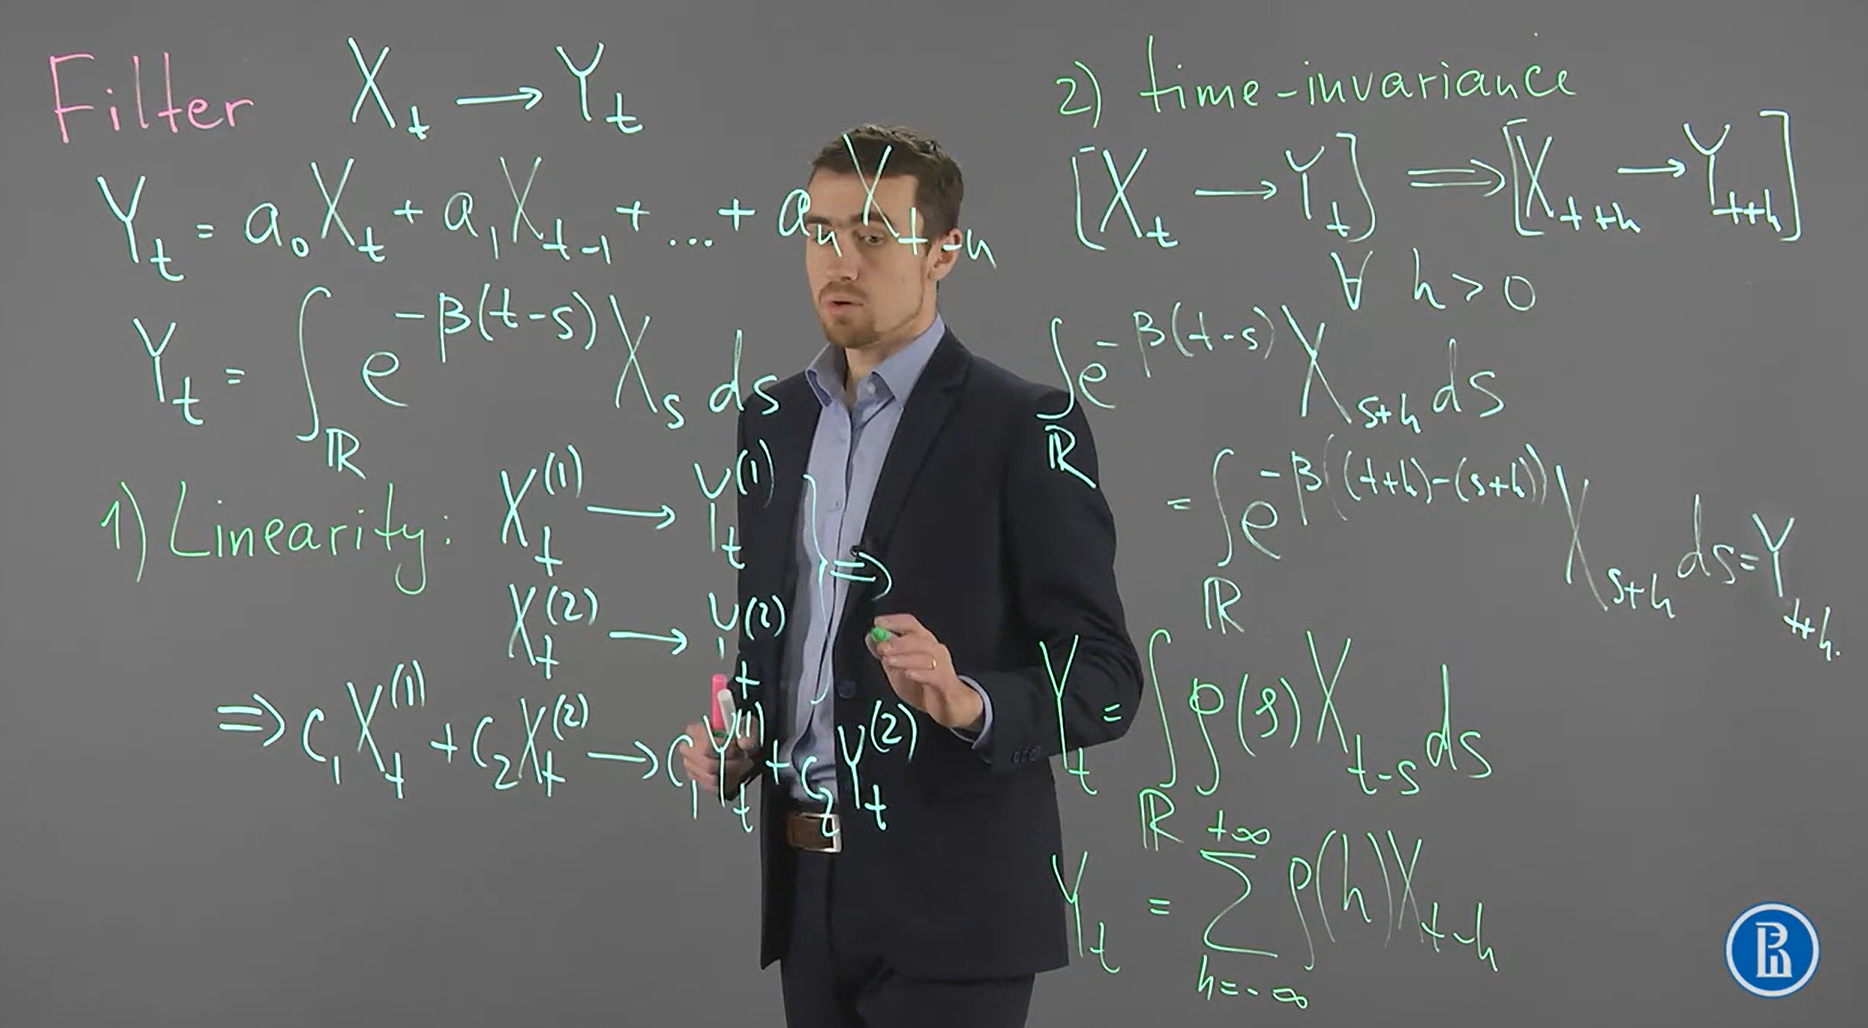 Filter X_t → Y_t
Y_t = a_0 X_t + a_1 X_{t-1} + ... + a_n X_{t-n}
Y_t = ∫_ℝ e^{-β(t-s)} X_s ds
1) Linearity: X_t^{(1)} → Y_t^{(1)}
X_t^{(2)} → Y_t^{(2)} } ⇒
⇒ c_1 X_t^{(1)} + c_2 X_t^{(2)} → c_1 Y_t^{(1)} + c_2 Y_t^{(2)}
2) time-invariance
[X_t → Y_t] ⇒ [X_{t+h} → Y_{t+h}]
∀ h > 0
∫_ℝ e^{-β(t-s)} X_{s+h} ds
= ∫_ℝ e^{-β((t+h)-(s+h))} X_{s+h} ds = Y_{t+h}.
Y_t = ∫_ℝ ρ(s) X_{t-s} ds
Y_t = ∑_{h=-∞}^{+∞} ρ(h) X_{t-h}